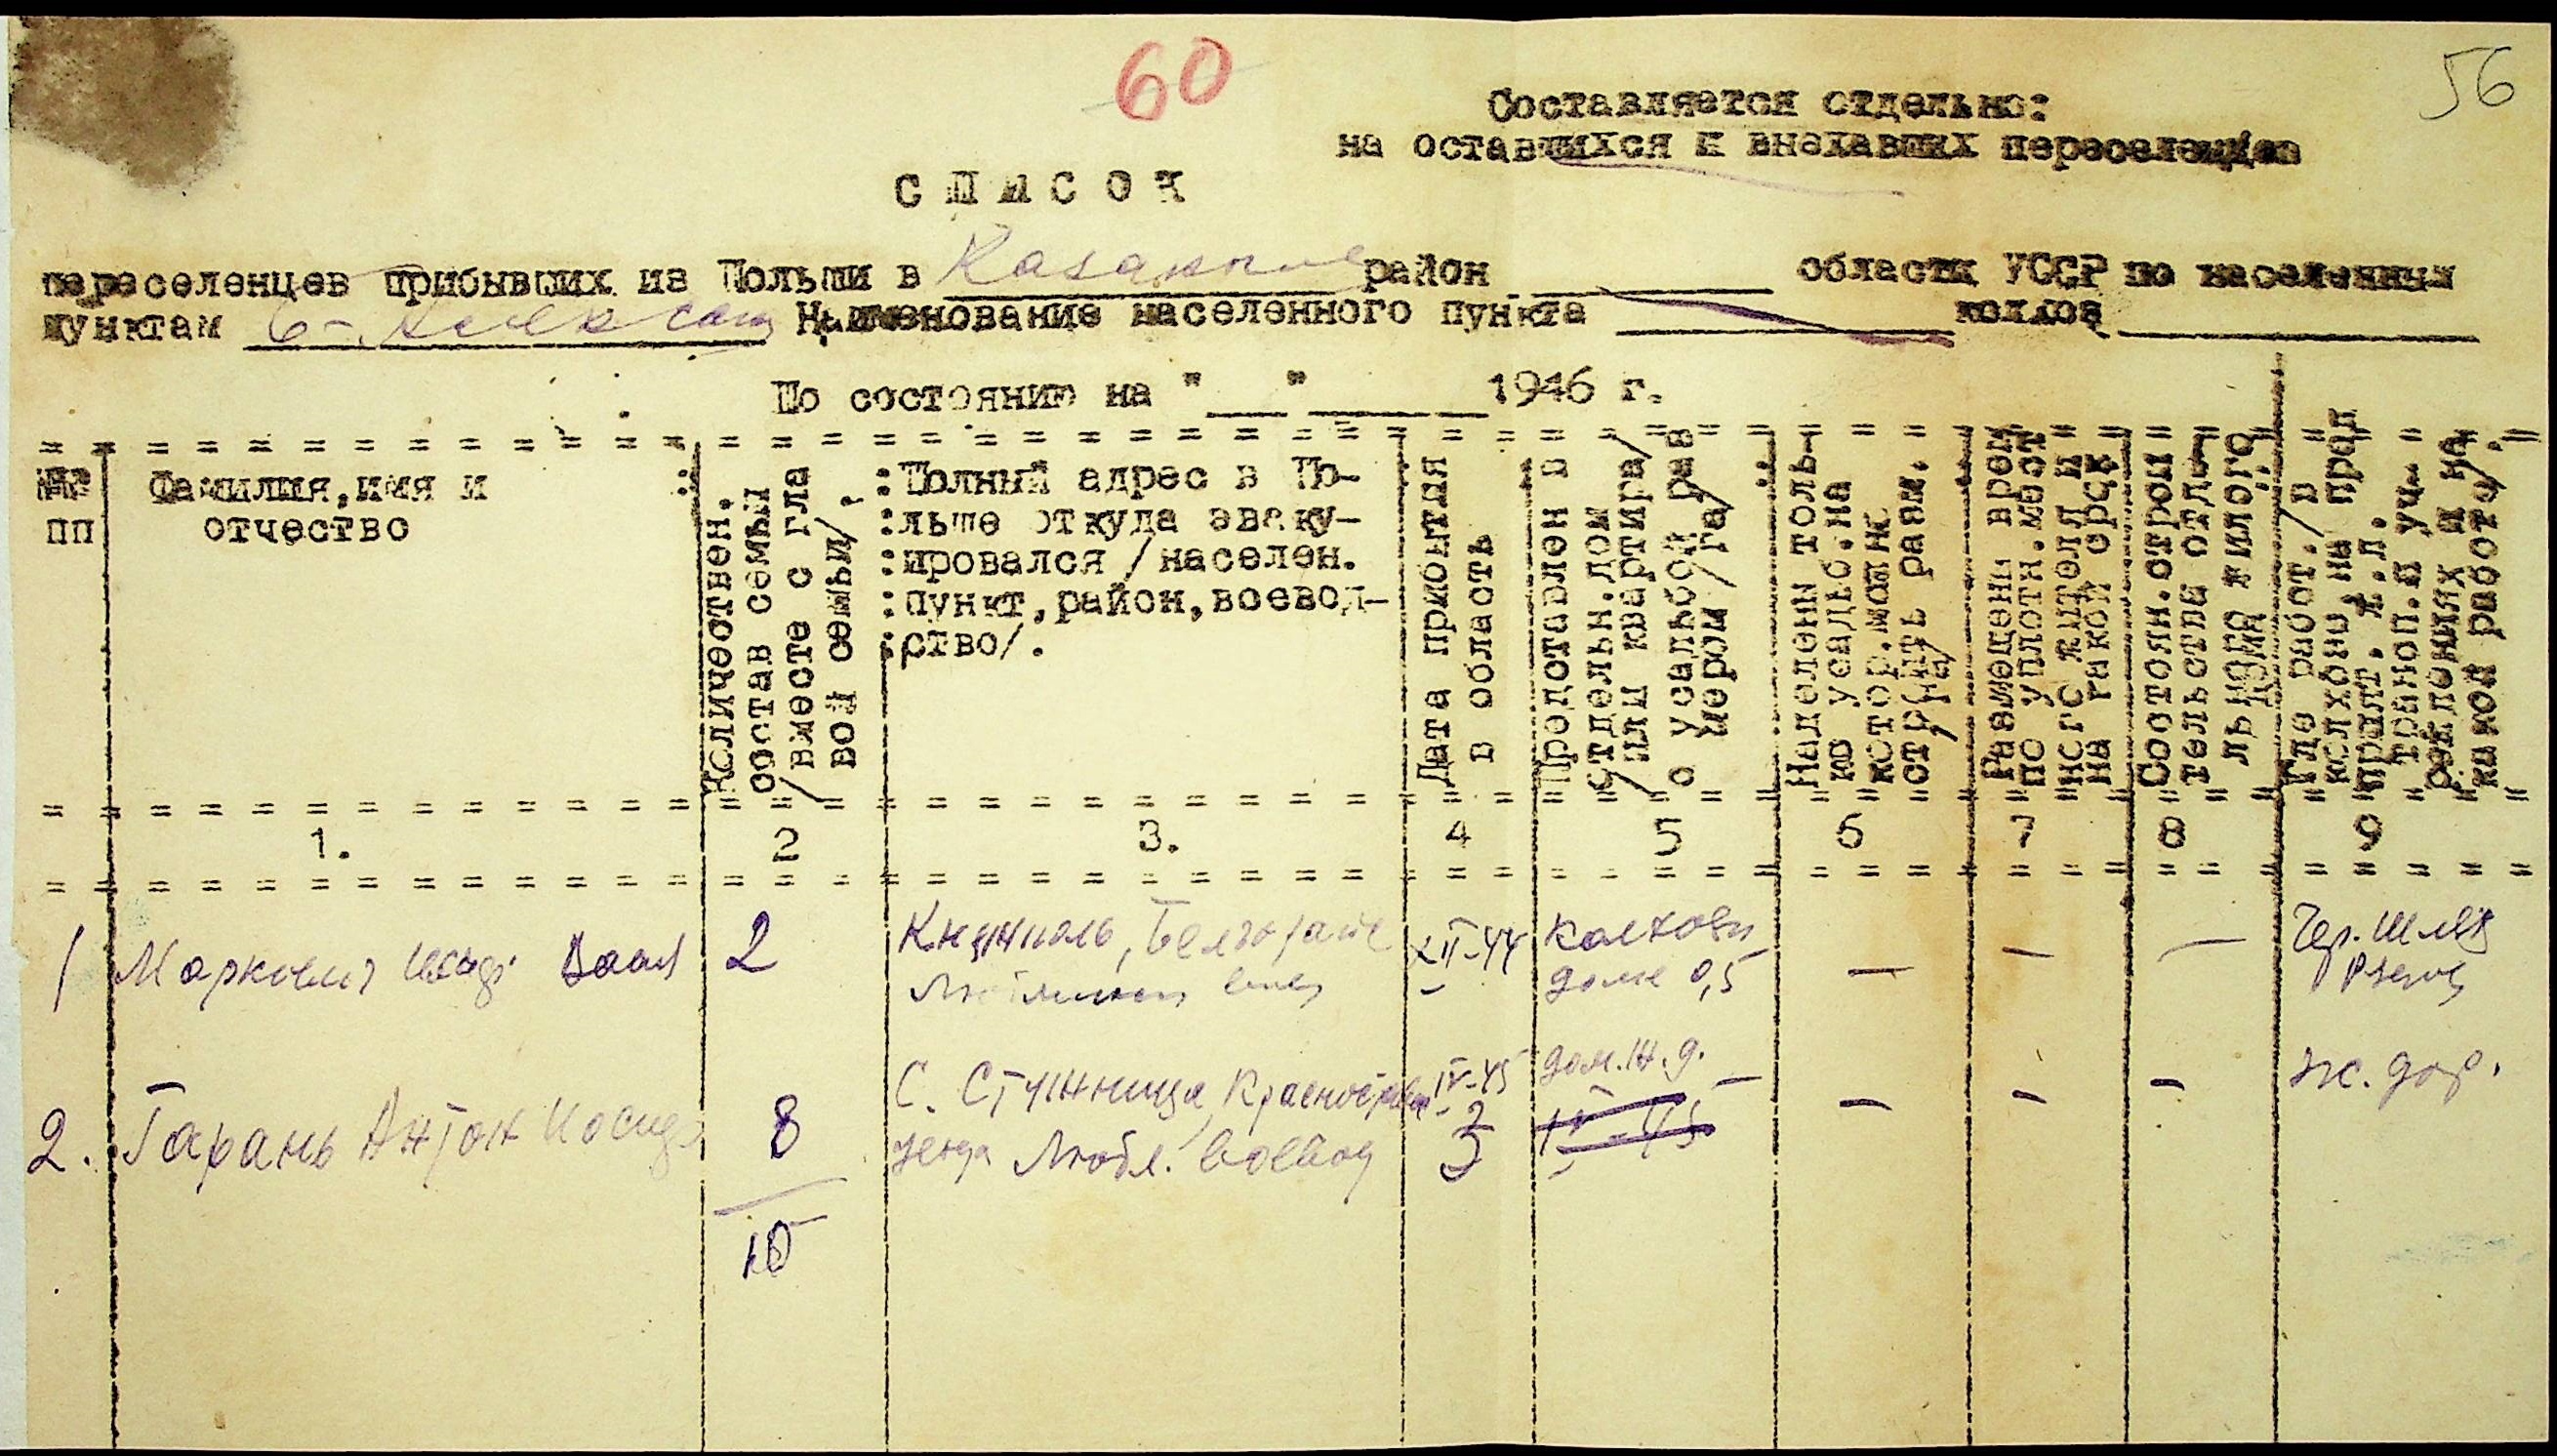 60
56
Составляется отдельно:
на оставшихся и внехавших переселенцев
СПИСОК
переселенцев прибывших из Польши в район области УССР по населенным
пунктам Наименование населенного пункта колхоз
По состоянию на " " 1946 г.
№№ пп
Фамилия, имя и
отчество
Количествен.
состав семьи
/вместе с гла
вой семьи/.
Полный адрес в По-
льше откуда эваку-
ировался /населен.
пункт, район, воевод-
ство/.
Дата прибытия
в область
Предоставлен в
отдельн. дом
/или квартира/
о усальбой раз
мером /га/
Наделены толь-
ко усадьб. на
котор. можно
строить разм.
/га/
Размещены врем
по уплотн. мест
ного жителя и
на такой срок
Состоян. строи
тельства отде
льного жилого
дома
Где работ. /в
колхозе, на пред
прият. ж.д.
трансп. и уч-
реждениях и на
какой работе/.
1. 2 3. 4 5 6 7 8 9
1 Маркевич 2
Княжполь, Белгорайс
XII-44
колхозн
доме 0,5
— — —
2. Гарань Антон Иосиф 8
С. Стунница, Красностав
уезда Любл. воевод
IV-45
дом. ж.д.
— — — —
ж. дор.
10